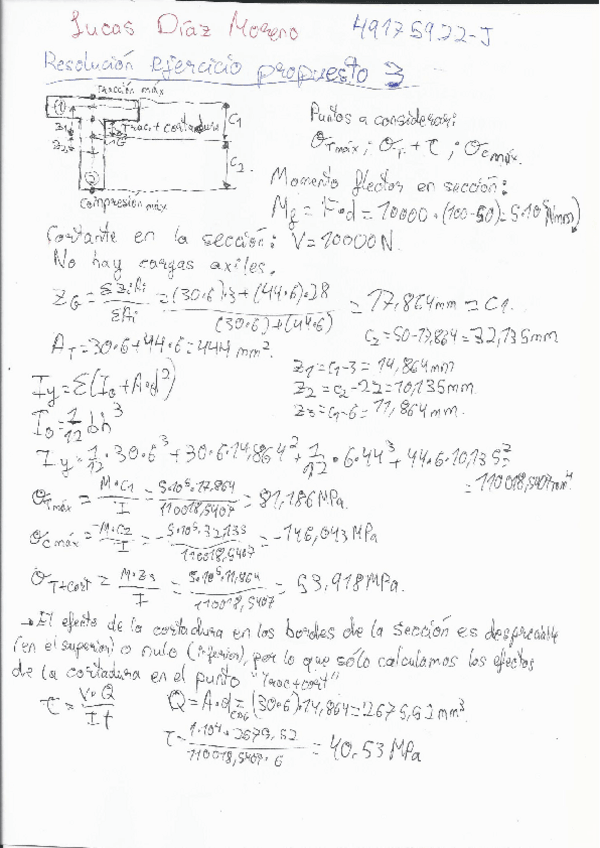 Lucas Díaz Moreno 49175922-J
Resolución ejercicio propuesto 3
Tracción máx
①
Z₁
Z₂
Z₃
G
Trac. + cortadura
C₁
C₂.
②
Compresión máx
Puntos a considerar:
σTmáx; σT + τ; σCmáx.
Momento flector en sección:
Mf = F·d = 10000·(100-50) = 5·10⁵(Nmm)
Cortante en la sección: V = 10000N.
No hay cargas axiles.
ZG = ΣZiAi/ΣAi = (30·6)·3 + (44·6)·28 / (30·6)+(44·6) = 17,864mm = C₁.
C₂ = 50-17,864 = 32,135mm
AT = 30·6 + 44·6 = 444 mm².
Z₁ = C₁-3 = 14,864mm
Iy = Σ(I₀ + A·d²)
Z₂ = C₂-22 = 10,135mm
Z₃ = C₁-6 = 11,864mm.
I₀ = 1/12 bh³
Iy = 1/12·30·6³ + 30·6·14,864² + 1/12·6·44³ + 44·6·10,135² =
= 110018,5407mm⁴
σTmáx = M·C₁/I = 5·10⁵·17,864/110018,5407 = 81,186 MPa.
σCmáx = -M·C₂/I = -5·10⁵·32,135/110018,5407 = -146,043 MPa
σT+cort = M·Z₃/I = 5·10⁵·11,864/110018,5407 = 53,918 MPa.
→ El efecto de la cortadura en los bordes de la sección es despreciable
(en el superior) o nulo (inferior), por lo que sólo calculamos los efectos
de la cortadura en el punto "Trac+cort"
τ = V·Q/I t Q = A·dCDG = (30·6)·14,864 = 2675,52 mm³.
τ = 1·10⁴·2675,52/110018,5407·6 = 40,53 MPa